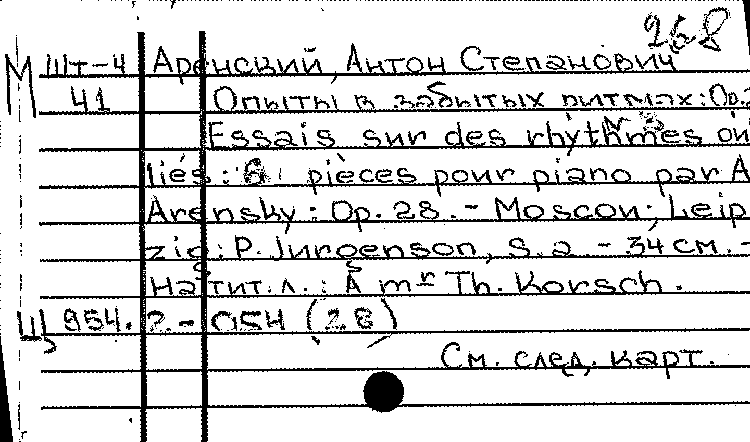 268
М Шт-4 Аренский, Антон Степанович
41 Опыты в забытых ритмах: Ор.
Essais sur des rhythmes ou
liés: 6 pièces pour piano par A
Arensky: Op. 28. - Moscou; Leip
zig: P. Jurgenson, s. a - 34 см. -
На тит. л.: À mr Th. Korsch.
Ц 854. 2.- 054 (28)
См. след. карт.